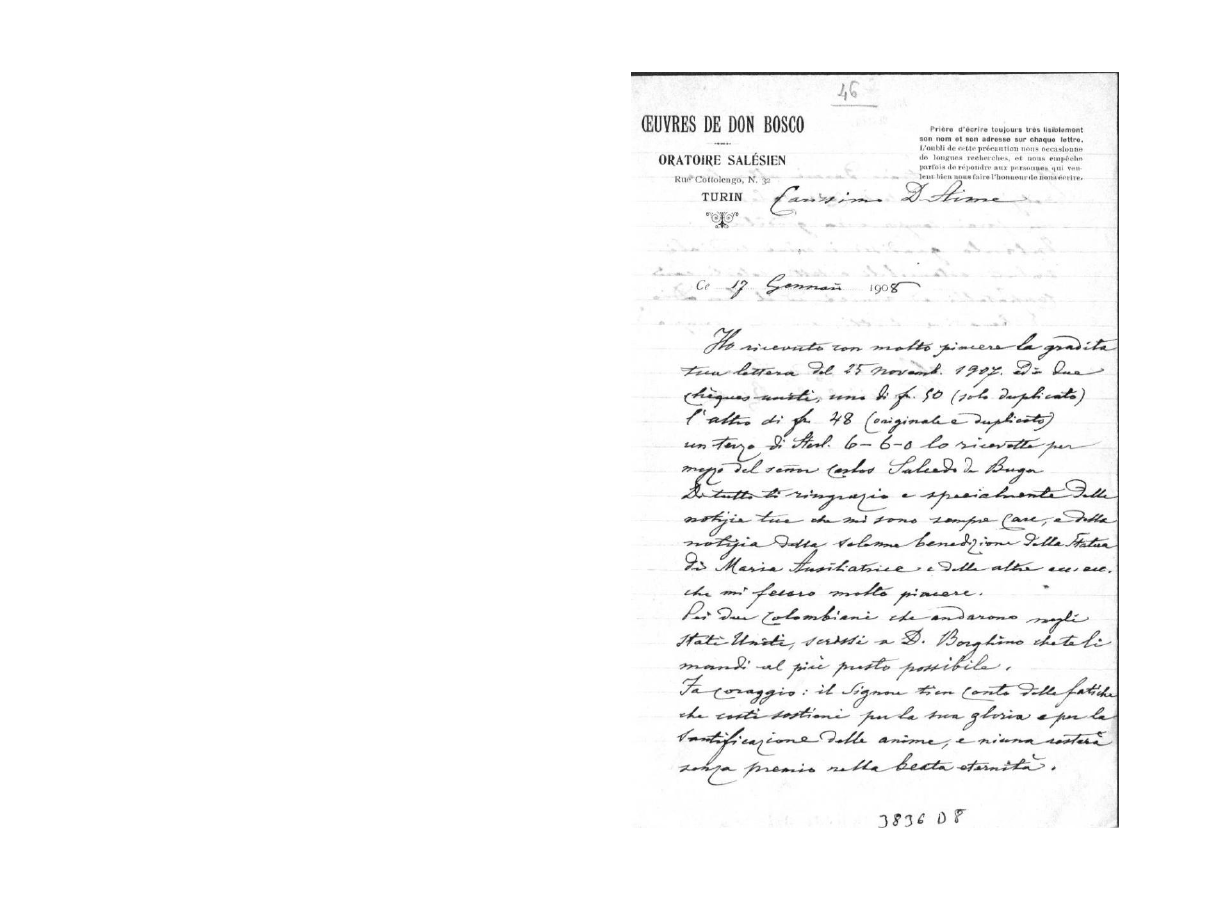 46
ŒUVRES DE DON BOSCO
ORATOIRE SALÉSIEN
Rue Cottolengo, N. 32
TURIN
Prière d'écrire toujours très lisiblement
son nom et son adresse sur chaque lettre.
L'oubli de cette précaution nous occasionne
de longues recherches, et nous empêche
parfois de répondre aux personnes qui veu-
lent bien nous faire l'honneur de nous écrire.
Carissimo D.
Ce 17 Gennaio 1908
Ho ricevuto con molto piacere la gradita
tua lettera del 25 novemb. 1907. due
chèques uniti, uno di fr. 50 (solo duplicato)
l'altro di fr. 48 (originale e duplicato)
un terzo di Sterl. 6-6-0 lo ricevette per
mezzo del señor Carlos Salcedo de Buga
Di tutto ti ringrazio e specialmente delle
notizie tue che mi sono sempre care, e della
notizia della solenne benedizione della Statua
di Maria Ausiliatrice e delle altre ecc. ecc.
che mi fecero molto piacere.
Pei due Colombiani che andarono negli
Stati Uniti, scrissi a D. Borghino che te li
mandi al più presto possibile.
Fa coraggio: il Signore tien conto delle fatiche
che costì sostieni per la sua gloria e per la
santificazione delle anime, e niuna resterà
senza premio nella beata eternità.
3836 D 8